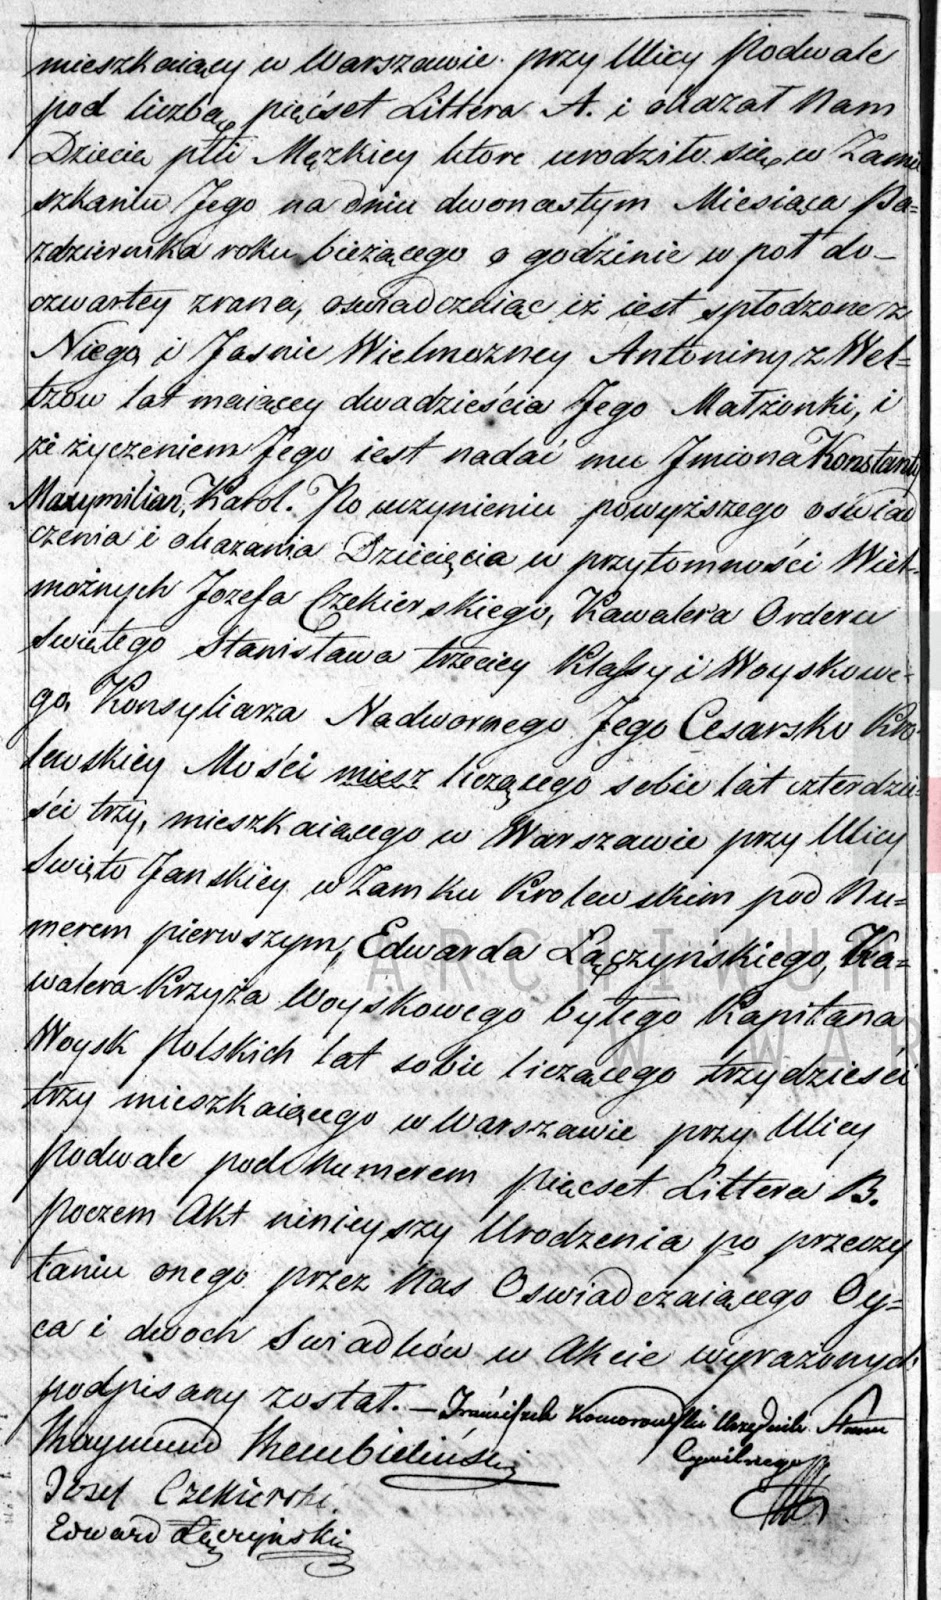 mieszkaiący w Warszawie przy Ulicy Podwale
pod liczbą pięćset Littera A. i okazał Nam
Dziecię płci Męzkiey które urodziło się w Zamie
szkaniu Jego na dniu dwónastym Miesiąca Pa=
zdziernika roku bieżącego o godzinie w pół do-
czwartey zrana, oswiadczaiąc iż iest spłodzone z
Niego i Jasnie Wielmożney Antoniny z Wel=
tzów lat maiącey dwadzieścia Jego Małżonki, i
że życzeniem Jego iest nadać mu Jmiona Konstanty
Maxymilian, Karol. Po uczynieniu powyższego oświad
czenia i okazania Dziecięcia w przytomności Wiel=
możnych Jozefa Czekierskiego, Kawalera Orderu
Swiętego Stanisława trzeciey Klassy i Woyskowe=
go, Konsyliarza Nadwornego Jego Cesarsko Kró=
lewskiey Mości miesz liczącego sobie lat czterdzie=
ści trzy, mieszkaiącego w Warszawie przy Ulicy
Swięto Janskiey w Zamku Krolewskim pod Nu=
merem pierwszym, Edwarda Łączyńskiego, Ka=
walera Krzyża Woyskowego byłego Kapitana
Woysk Polskich lat sobie liczącego trzydzieści
trzy mieszkaiącego w Warszawie przy Ulicy
Podwale pod Numerem pięcset Littera B.
Poczem Akt ninieyszy Urodzenia po przeczy
taniu onego przez Nas Oswiadczaiącego Oy=
ca i dwoch Swiadków w Akcie wyrażonych
podpisany został. — Franciszek Komorowski Urzędnik Stanu
Cywilnego
Raymund Rembieliński
Józef Czekierski
Edward Łączyński
ARCHIWUM
W WAR